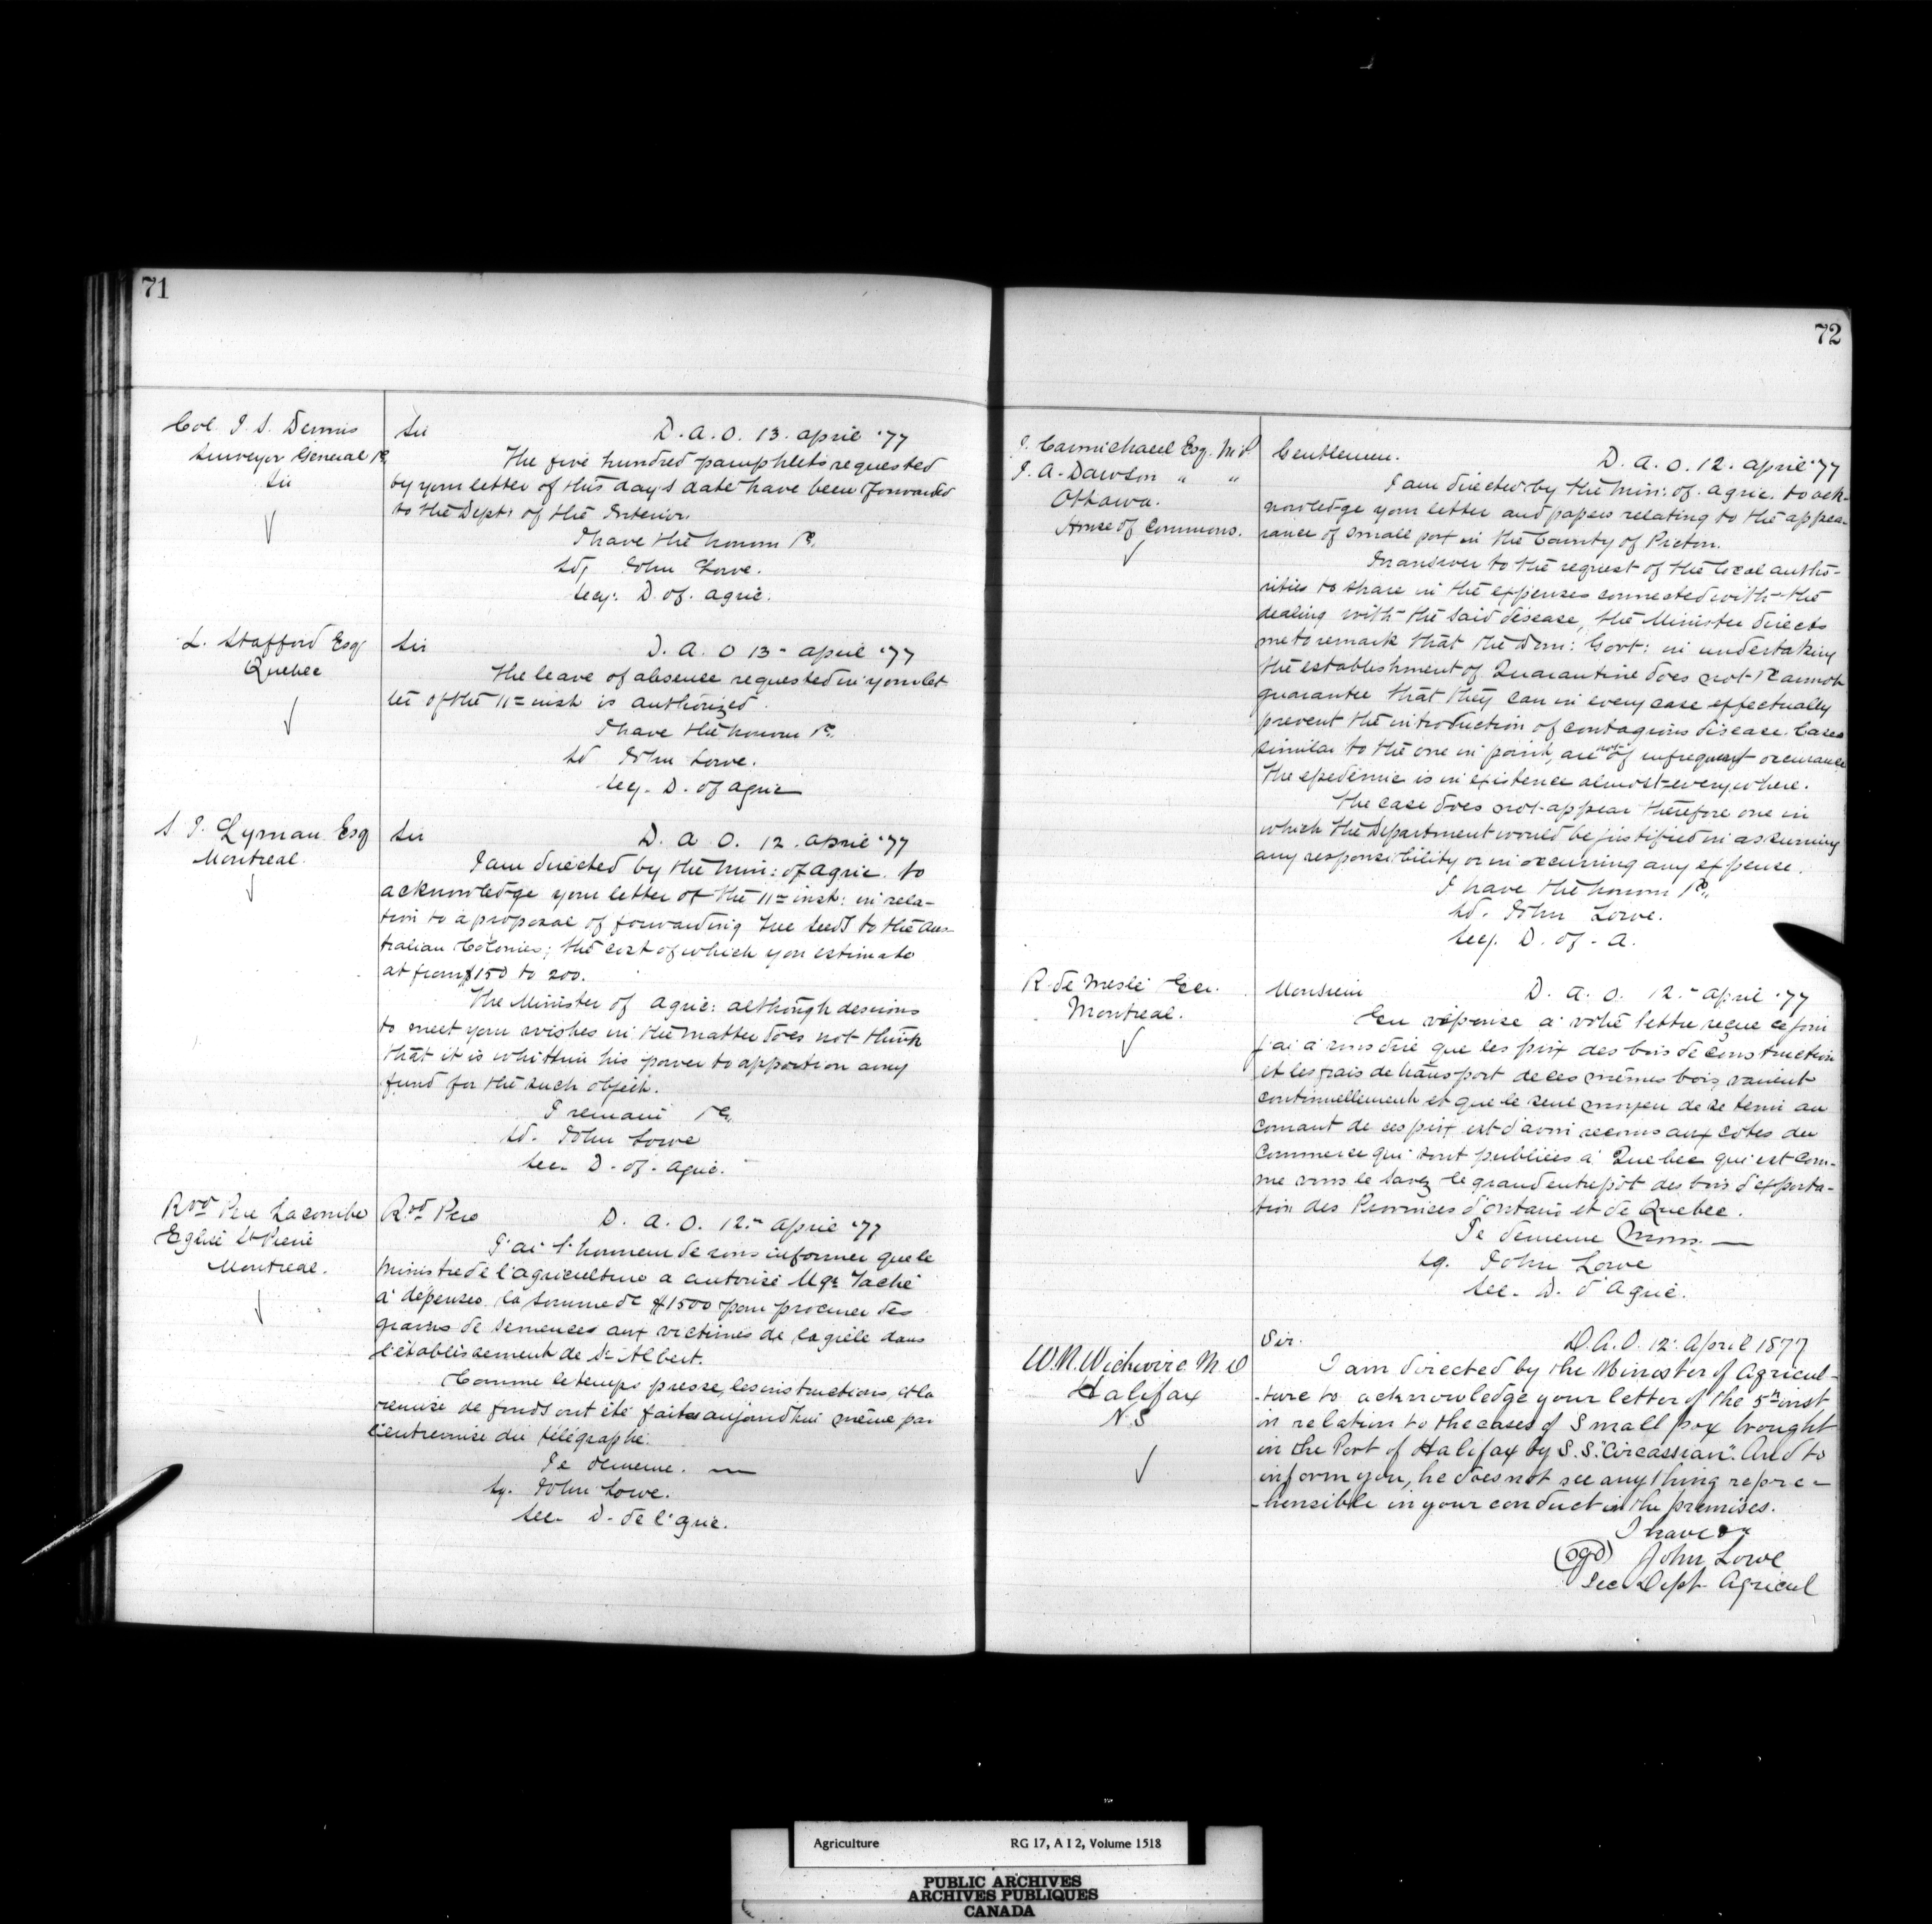 71
Col. J. S. Dennis
Surveyor General &c.
Sir
Sir
D. A. O. 13. april '77
The five hundred pamphlets requested
by your letter of this day's date have been forwarded
to the Dept: of the Interior.
I have the honour &c.
sd, John Lowe.
Secy: D. of. agric.
L. Stafford Esq
Quebec
Sir
D. A. O 13 - april '77
The leave of absence requested in your let
ter of the 11th inst is authorized.
I have the honour &c.
sd John Lowe.
Secy. D. of agric
S. J. Lyman Esq
Montreal.
Sir
D. a O. 12. april '77
I am directed by the Min: of Agric. to
acknowledge your letter of the 11th inst: in rela-
tion to a proposal of forwarding tree seeds to the Aus-
tralian Colonies; the cost of which you estimate
at from $150 to 200.
The Minister of Agric: although desirous
to meet your wishes in the matter does not think
that it is whithin his power to apportion any
fund for the such object.
I remain &c.
sd. John Lowe
Sec. D. of. agric.
Rvd Père Lacombe
Eglise St Pierre
Montreal.
Rvd Père
D. A. O. 12th april '77
J'ai l'honneur de vous informer que le
Ministre de l'agriculture a autorisé Mgr Taché
à dépenser la somme de $1500 pour procurer des
grains de semences aux victimes de la grêle dans
l'établissement de St Albert.
Comme le temps presse, les instructions, et la
remise de fonds ont été faites aujourdhui même par
l'entremise du télégraphe.
Je demeure. —
sg. John Lowe.
Sec. D. de l'agric.
72
J. Carmichael Esq. M.P.
J. A. Dawson " "
Ottawa.
House of Commons.
Gentlemen.
D. A. O. 12. april '77
I am directed by the Min: of. Agric. to ack-
nowledge your letter and papers relating to the appea-
rance of small pox in the County of Pictou.
In answer to the request of the local autho-
rities to share in the expenses connected with the
dealing with the said disease, the Minister directs
me to remark that the Dom: Govt: in undertaking
the establishment of Quarantine does not & cannot
guarantee that they can in every case effectually
prevent the introduction of contagious disease. Cases
similar to the one in point, are not of infrequent occurance
The epedemic is in existence almost everywhere.
The case does not appear therefore one in
which the Department would be justified in assuming
any responsibility or in occurring any expense.
I have the honour &c.
sd. John Lowe.
Secy. D. of. A.
R. de Meslé
Montreal.
Monsieur
D. A. O. 12th april '77
En réponse à votre lettre reçue ce jour
j'ai à vous dire que les prix des bois de construction
et les frais de transport de ces mêmes bois varient
continuellement et que le seul moyen de se tenir au
courant de ces prix est d'avoir recours aux cotes du
Commerce qui sont publiées à Quebec qui est com-
me vous le savez le grand entrepôt des bois d'exporta-
tion des Provinces d'Ontario et de Quebec.
Je demeure Mons. —
sg. John Lowe
Sec. D. d'Agric.
W. N. Wickwire M.D
Halifax
N.S
Sir.
D. A. O. 12. April 1877
I am directed by the Minister of Agricul-
-ture to acknowledge your letter of the 5th inst
in relation to the cases of Small pox brought
in the Port of Halifax by S.S. "Circassian". And to
inform you, he does not see any thing repre-
-hensible in your conduct in the premises.
I have &c
(sgd) John Lowe
Sec Dept. Agricul
Agriculture RG 17, A I 2, Volume 1518
PUBLIC ARCHIVES
ARCHIVES PUBLIQUES
CANADA